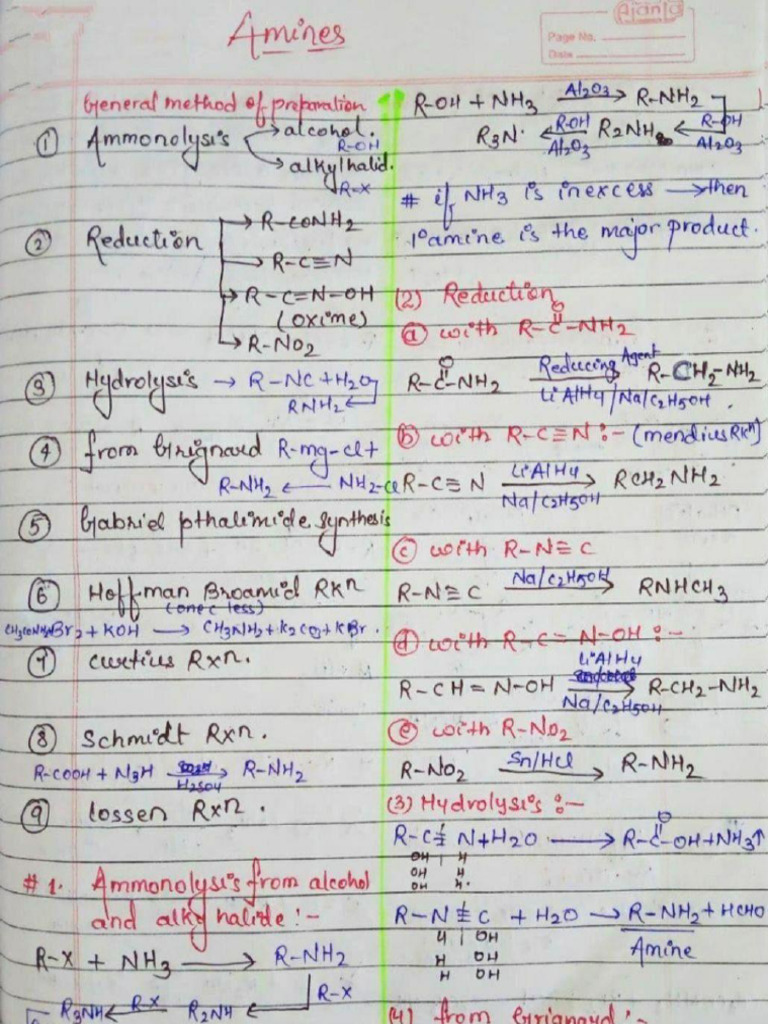 Amines
Ajanta
Page No.
Date
General method of preparation
① Ammonolysis → alcohol.
R-OH
→ alkylhalid.
R-X
② Reduction → R-CONH2
→ R-C≡N
→ R-C=N-OH
(oxime)
→ R-NO2
③ Hydrolysis → R-NC+H2O
RNH2 ←
④ from Grignard R-mg-cl+
R-NH2 ← NH2-cl
⑤ Gabriel pthalimide synthesis
⑥ Hoffman Broamid RXn
(one c less)
CH3CONH2Br2+KOH → CH3NH2+K2CO3+KBr.
⑦ curtius Rxn.
⑧ Schmidt Rxn.
R-COOH + N3H → R-NH2
H2SO4
⑨ lossen Rxn.
#1. Ammonolysis from alcohol
and alky halide:-
R-X + NH3 → R-NH2
R-X
R3NH ← R-X R2NH ←
R-OH + NH3 Al2O3 → R-NH2
R3N. ← R-OH Al2O3 R2NH ← R-OH Al2O3
# if NH3 is inexcess → then
1° amine is the major product.
(2) Reduction
ⓐ with R-C-NH2
O
O
R-C-NH2 Reducing Agent → R-CH2-NH2
LiAlH4/Na/C2H5OH.
ⓑ with R-C≡N:- (mendius RXn)
R-C≡N LiAlH4 → RCH2NH2
Na/C2H5OH
ⓒ with R-N≡C
R-N≡C Na/C2H5OH → RNHCH3
ⓓ with R-C=N-OH:-
LiAlH4
R-CH=N-OH → R-CH2-NH2
Na/C2H5OH
ⓔ with R-NO2
R-NO2 Sn/HCl → R-NH2
(3) Hydrolysis:-
O
R-C≡N+H2O → R-C-OH+NH3↑
OH H
OH H
OH H.
R-N≡C + H2O → R-NH2 + HCHO
H OH
H OH
H OH
Amine
(4) from Grignard:-